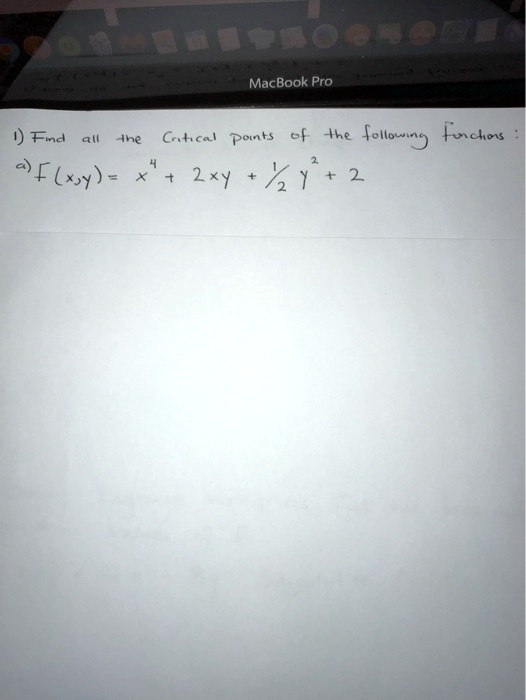 MacBook Pro
1) Find all the Critical points of the following functions :
a) F(x,y) = x⁴ + 2xy + 1/2 y² + 2